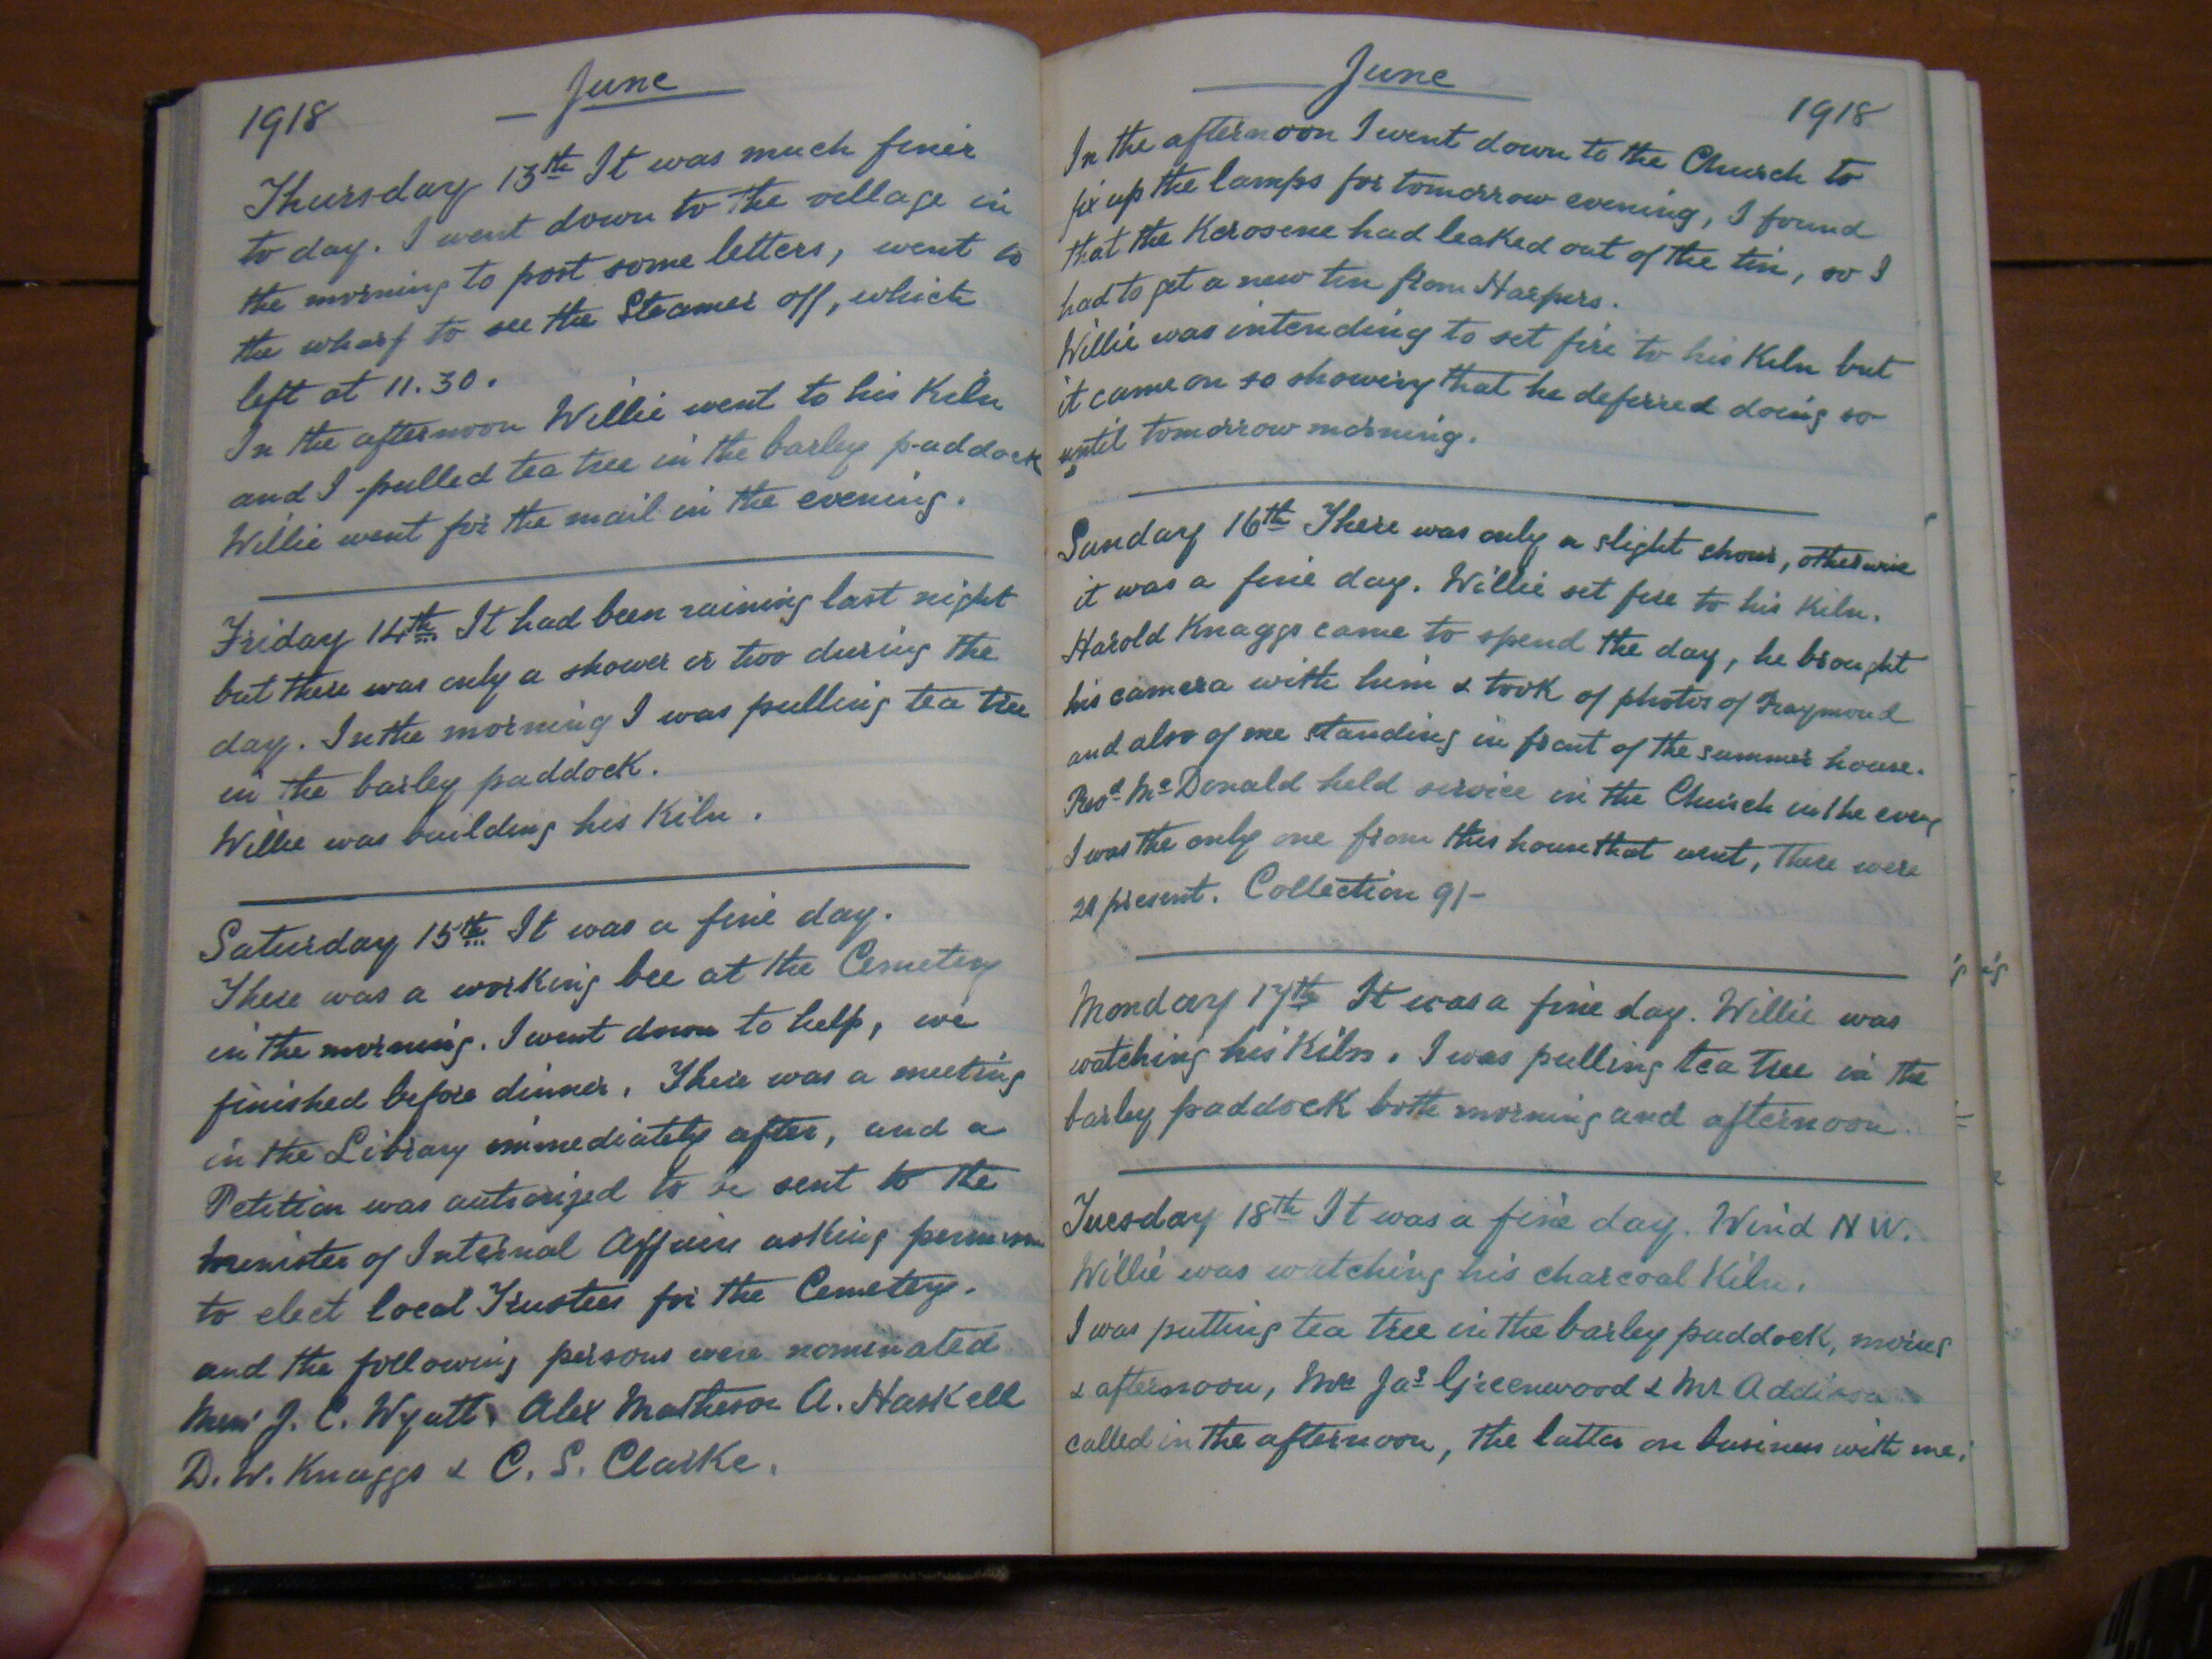 June
1918
Thursday 13th It was much finer
to day. I went down to the village in
the morning to post some letters, went to
the wharf to see the Steamer off, which
left at 11.30.
In the afternoon Willie went to his Kiln
and I pulled tea tree in the barley paddock
Willie went for the mail in the evening.
Friday 14th It had been raining last night
but there was only a shower or two during the
day. In the morning I was pulling tea tree
in the barley paddock.
Willie was building his Kiln.
Saturday 15th It was a fine day.
There was a working bee at the Cemetery
in the morning. I went down to help, we
finished before dinner. There was a meeting
in the Library immediately after, and a
Petition was authorized to be sent to the
Minister of Internal Affairs asking permission
to elect local Trustees for the Cemetery.
and the following persons were nominated
J. C. Wyatt, Alex Matheson A. Haskell
D. W. Knaggs & C. S. Clarke.
June
1918
In the afternoon I went down to the Church to
fix up the lamps for tomorrow evening, I found
that the Kerosene had leaked out of the tin, so I
had to get a new tin from Harpers.
Willie was intending to set fire to his Kiln but
it came on so showery that he deferred doing so
until tomorrow morning.
Sunday 16th There was only a slight shower, otherwise
it was a fine day. Willie set fire to his Kiln.
Harold Knaggs came to spend the day, he brought
his camera with him & took of photos of Fraymond
and also of me standing in front of the summer house.
Revd McDonald held service in the Church in the eveng
I was the only one from this house that went, There were
present. Collection 9/-
Monday 17th It was a fine day. Willie was
watching his Kiln. I was pulling tea tree in the
barley paddock both morning and afternoon.
Tuesday 18th It was a fine day. Wind NW.
Willie was watching his charcoal Kiln.
I was putting tea tree in the barley paddock, morng
& afternoon, Mr Jas Greenwood & Mr Addison
called in the afternoon, the latter on business with me.